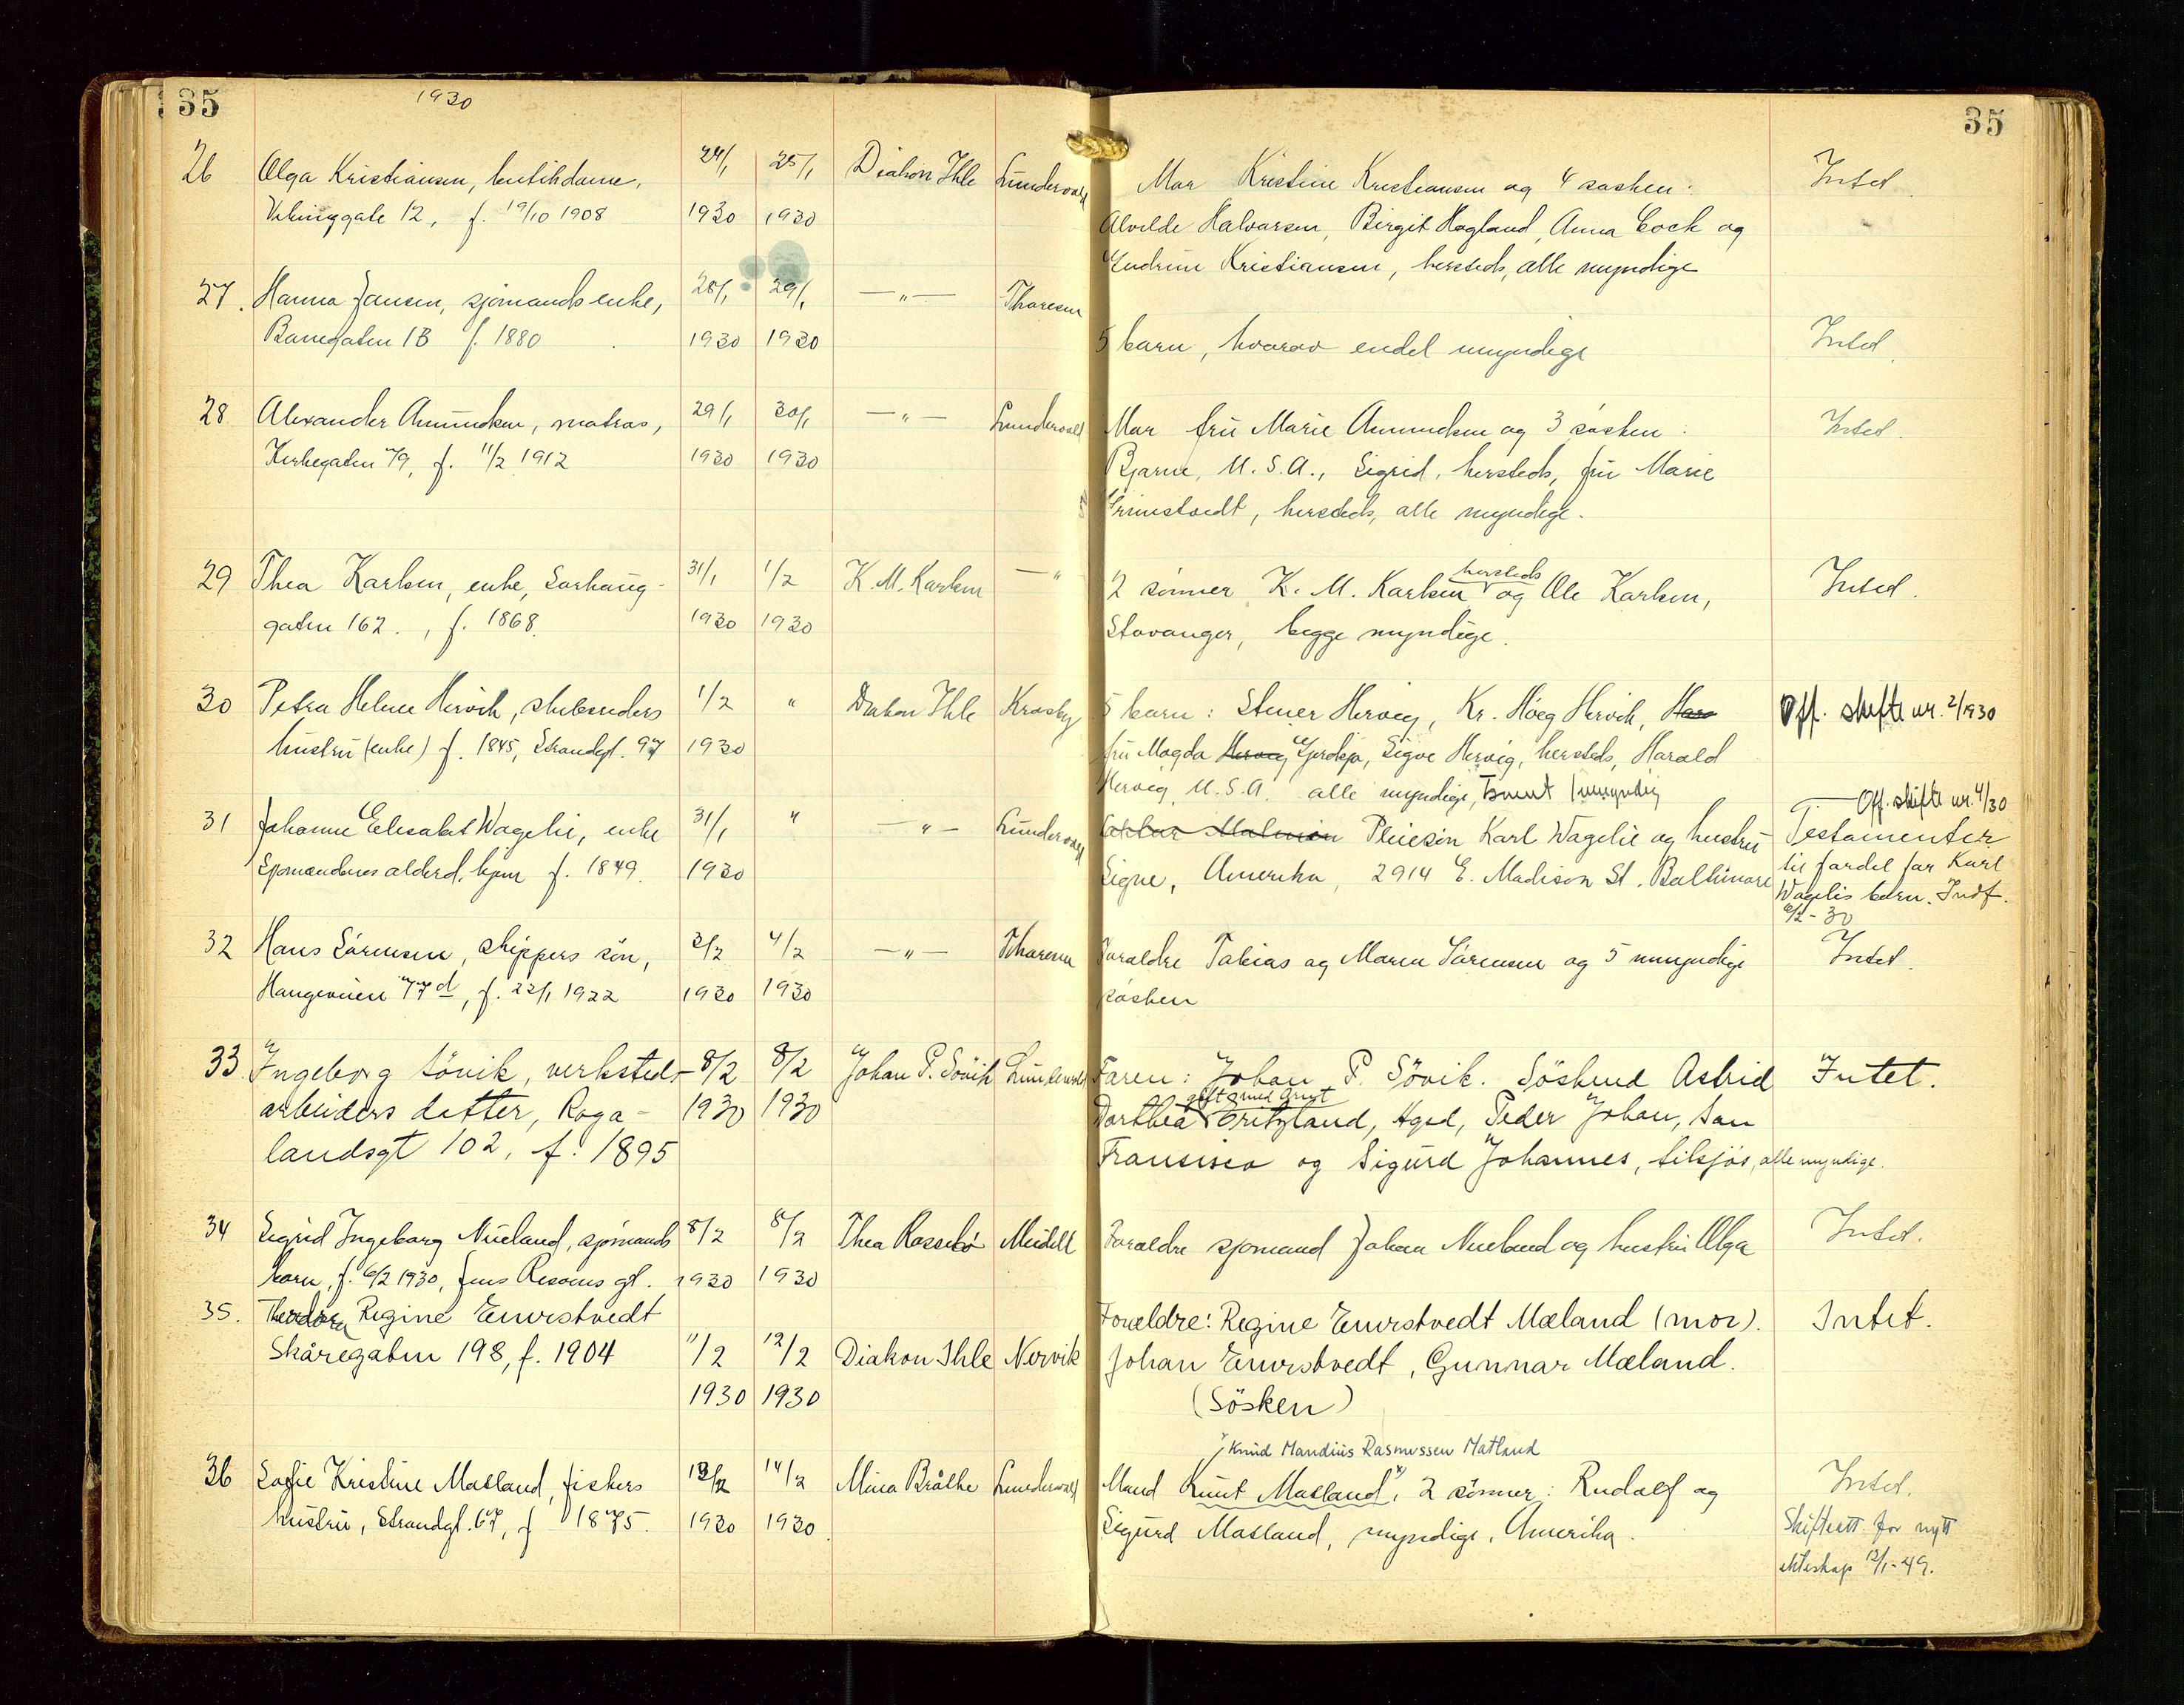 35 1930 35
26 Olga Kristiansen, butikdame, 24/1 25/1 Diakon Ihle Lundevold Mor Kristine Kristiansen og 4 søsken: Intet.
Vikinggate 12, f. 19/10 1908 1930 1930 Alvilde Halvorsen, Birgit Hagland, Anna Cock og
Gudrun Kristiansen, hersteds, alle myndige
27. Hanna Jansen, sjømands enke, 28/1 29/1 —„— Thoresen
Barregaten 13 f. 1880 1930 1930 5 barn, hvorav endel umyndige Intet.
28 Alexander Amundsen, matros, 29/1 30/1 —„— Lundevold Mor fru Marie Amundsen og 3 søsken: Intet.
Kirkegaten 79, f. 11/2 1912 1930 1930 Bjarne, U.S.A., Sigrid, hersteds, fru Marie
Grimstvedt, hersteds, alle myndige.
29 Thea Karlsen, enke, Sørhaug- 31/1 1/2 K. M. Karlsen —„ 2 sønner K. M. Karlsen hersteds og Ole Karlsen, Intet.
gaten 162., f. 1868. 1930 1930 Stavanger, begge myndige.
30 Petra Helene Hervik, skibsreders 1/2 „ Diakon Ihle Krosby 5 barn: Stener Hervig, Kr. Høeg Hervik, Hara Off. skifte nr. 2/1930
hustru (enke) f. 1845, Strandgt. 97 1930 fru Magda Hervig, Sigve Hervig, hersteds, Harald
Hervig, U.S.A. alle myndige, umyndig
31 Johanne Elisabet Wagelie, enke 31/1 „ —„— Lundevold Pleiesøn Karl Wagelie og hustru Off. skifte nr. 4/30
Testamenter
Sjømændenes alderd. hjem f. 1849. 1930 Signe, Amerika, 2914 E. Madison St. Baltimore til fordel for Karl
Wagelis barn. Indf.
6/2-30
32 Hans Sørensen, skippers søn, 3/2 4/2 —„— Thoresen Foraldre Tobias og Maren Sørensen og 5 umyndige Intet.
Haugeveien 77d, f. 22/1 1922 1930 1930 søsken
33. Ingeborg Sövik, verksteds- 8/2 8/2 Johan P. Sövik Lundevold Faren: Johan P. Sövik. Söskend Astrid Intet.
arbeiders datter, Roga- 1930 1930 Dorthea gift med Arnt Fritzland, Hgsd, Peder Johan, San
landsgt 102, f. 1895 Francisco og Sigurd Johannes, tilsjös, alle myndige.
34 Sigrid Ingeborg Nueland, sjømands 8/2 8/2 Thea Rossebø Meidell Foraldre sjømand Johan Nueland og hustru Olga Intet.
barn, f. 6/2 1930, Jens Risøens gt. 1930 1930
35. Theodora Regine Enerstvedt Forældre: Regine Enerstvedt Mæland (mor). Intet.
Skåregaten 198, f. 1904 11/2 12/2 Diakon Ihle Nervik Johan Enerstvedt, Gunnar Mæland.
1930 1930 (Søsken)
x/ Knud Mandius Rasmussen Matland
36 Sofie Kristine Matland, fiskers 13/2 14/2 Mina Bråthe Lundevold Mand Knut Matland x, 2 sønner: Rudolf og Intet.
hustru, Strandgt. 67, f 1875. 1930 1930. Sigurd Matland, myndige, Amerika. Skifteatt. for nytt
ekteskap 13/1-49.